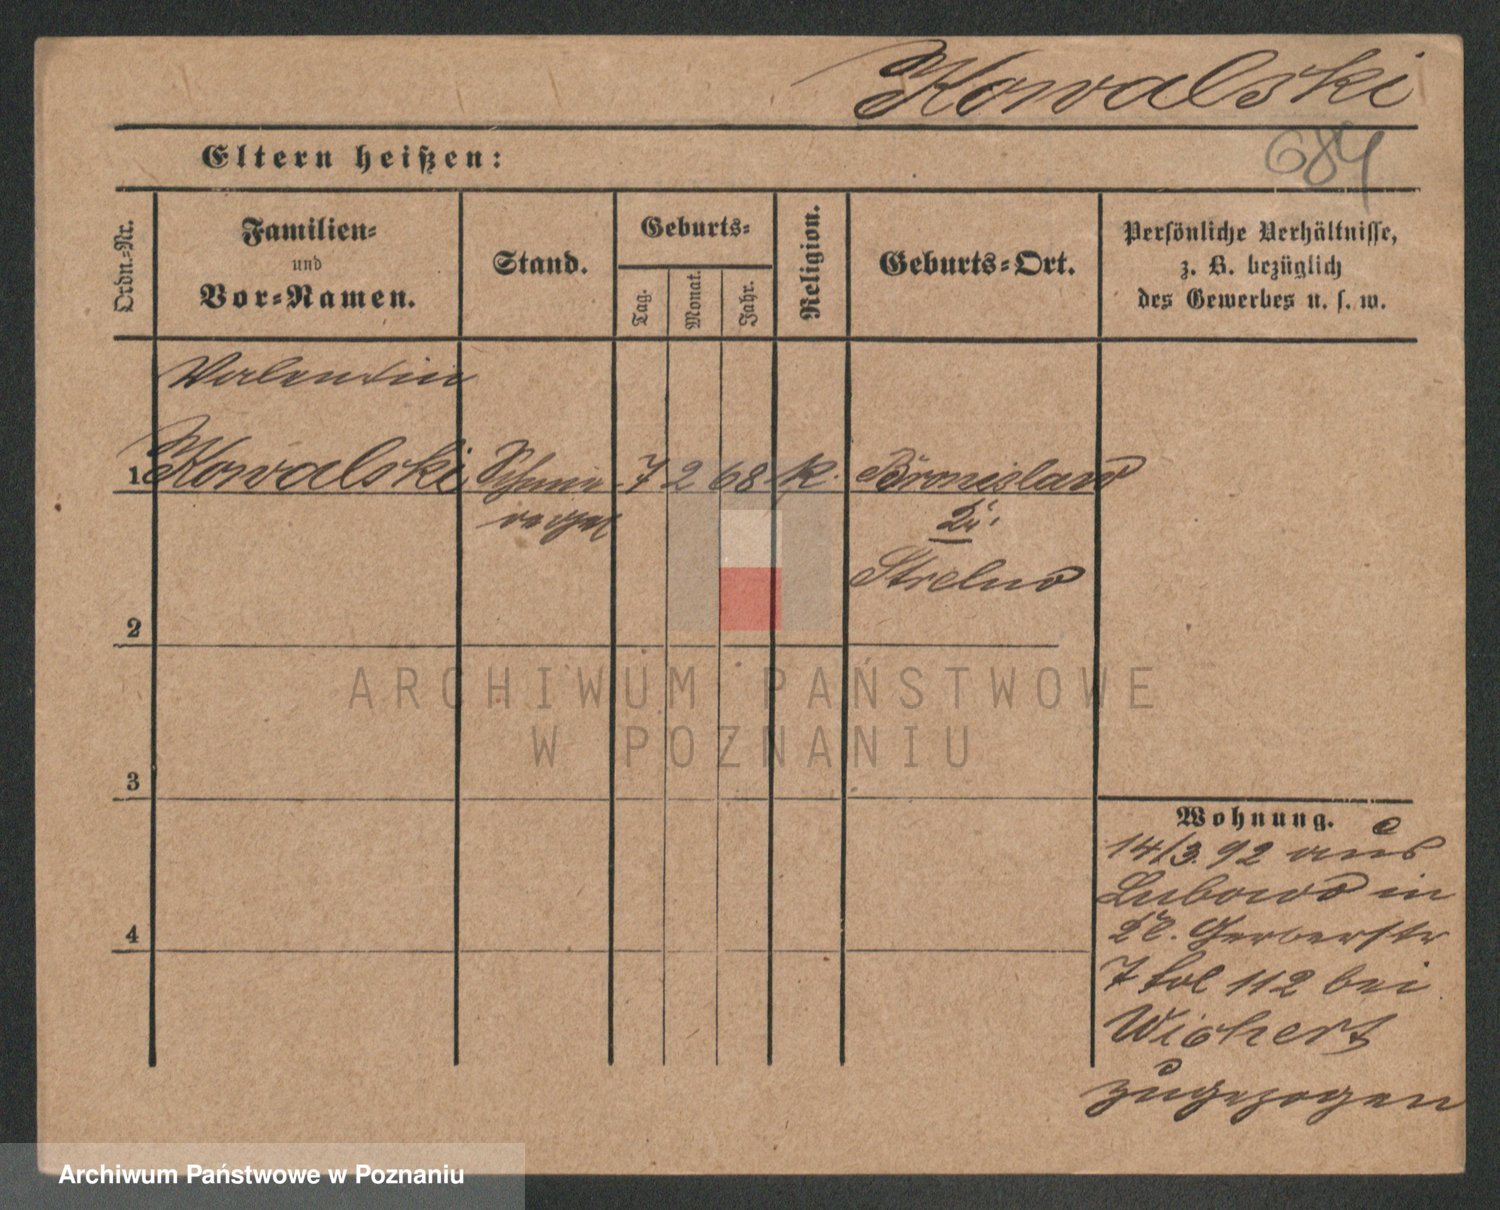 Kowalski
684
Eltern heißen:
Ordn.-Nr.
Familien-
und
Vor-Namen.
Stand.
Geburts-
Tag.
Monat.
Jahr.
Religion.
Geburts-Ort.
Persönliche Verhältnisse,
z. B. bezüglich
des Gewerbes u. s. w.
Valentin
1 Kowalski 7 2 68 K. Bronislaw
Kr.
Strelno
2
3
4
Wohnung.
14/3. 92 aus
Lubowo in
Gerberstr
7 bei
Wichert
zugezogen
ARCHIWUM PAŃSTWOWE
W POZNANIU
Archiwum Państwowe w Poznaniu